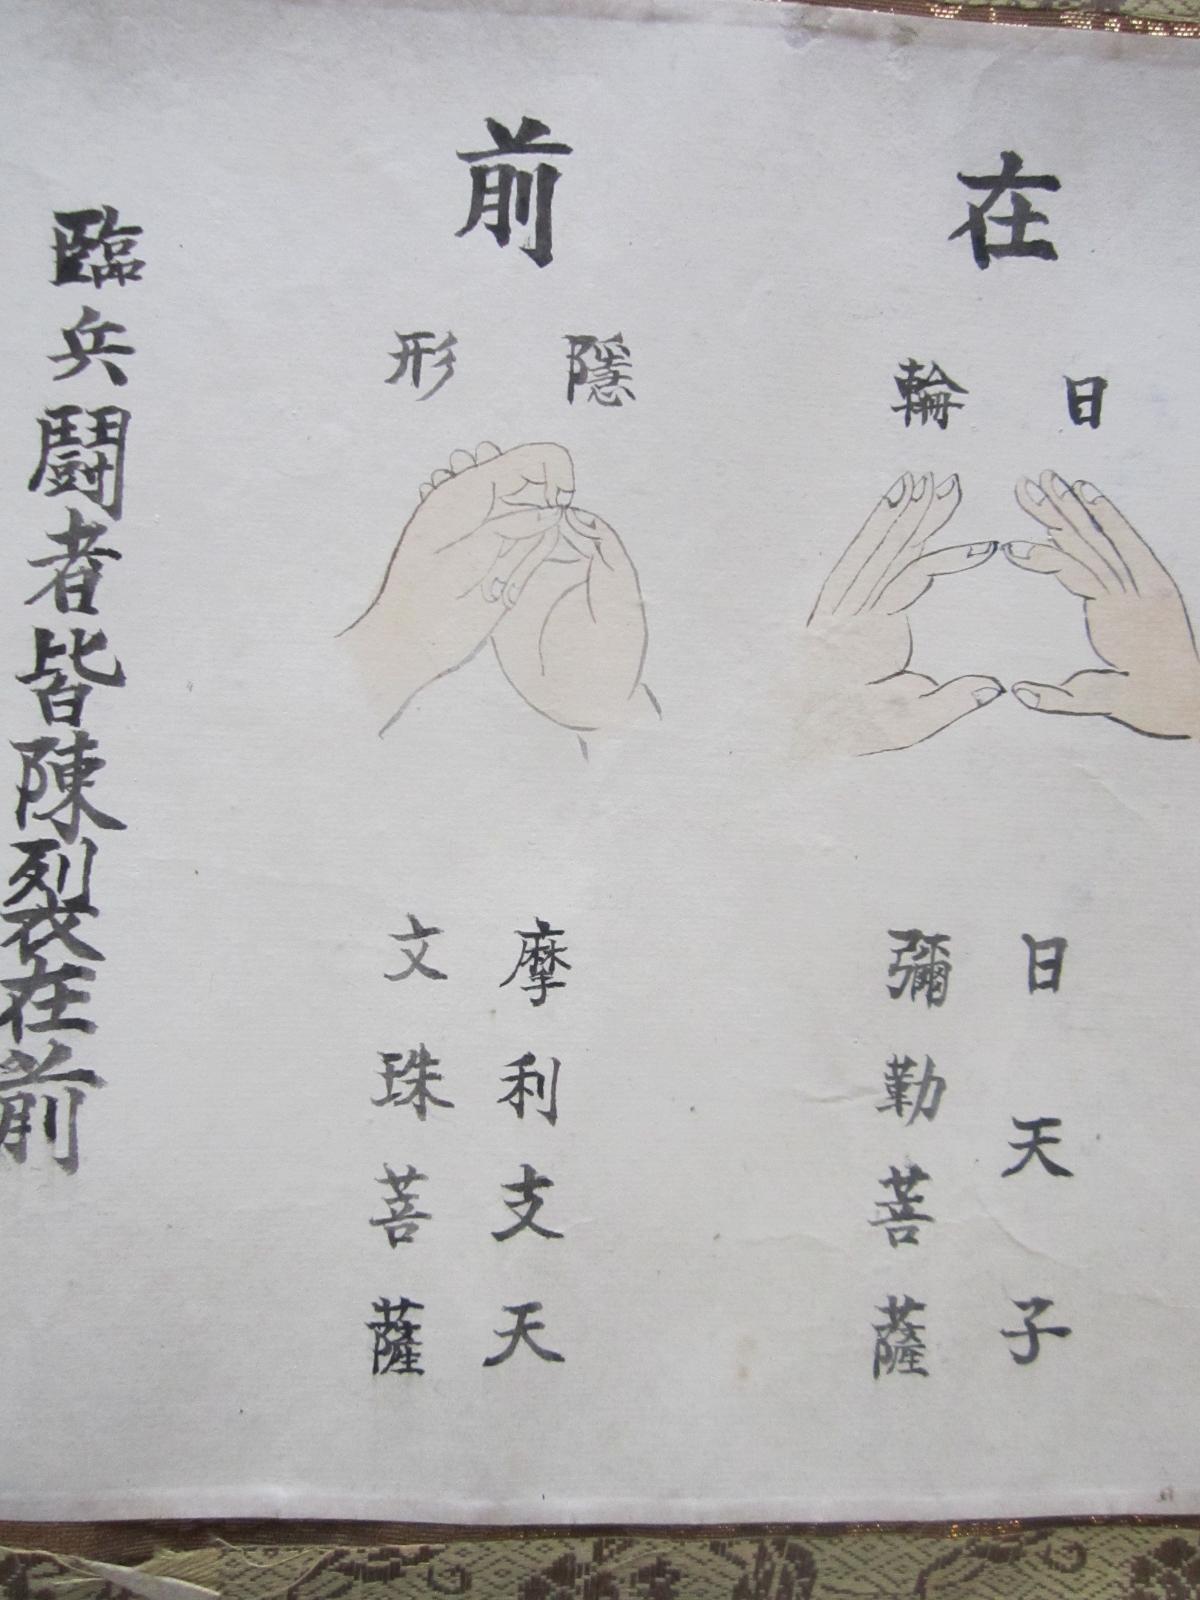 在
日輪
日天子
彌勒菩薩
前
隱形
摩利支天
文珠菩薩
臨兵鬪者皆陳裂在前